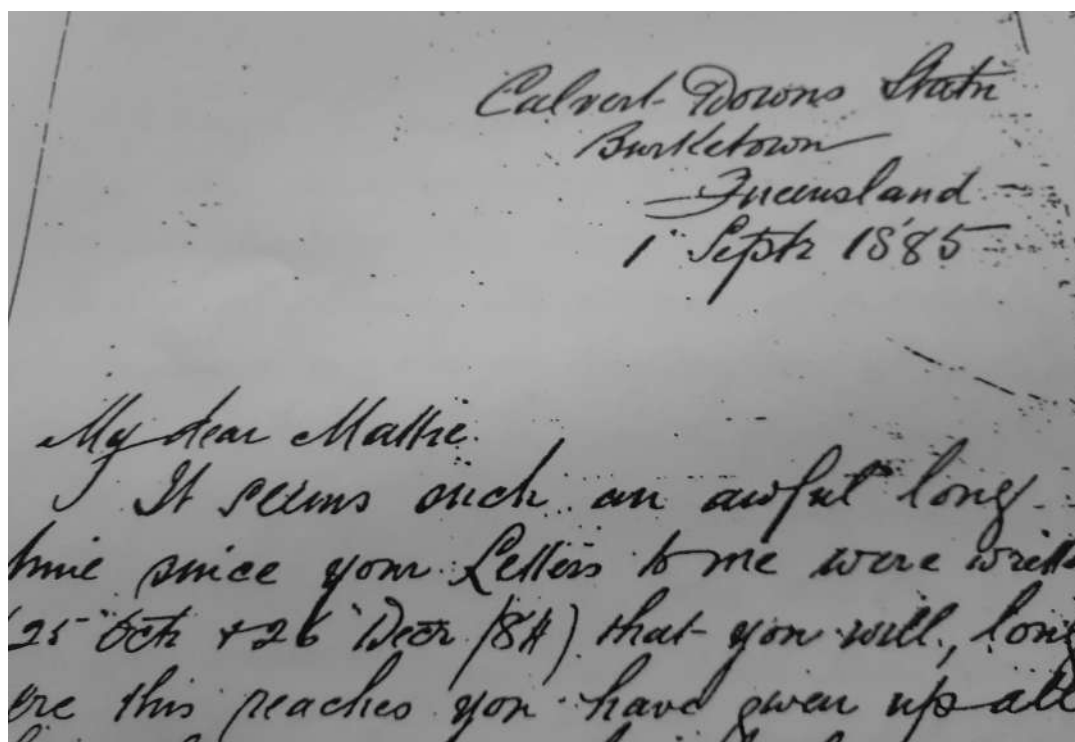 Calvert Downs Statn
Burketown
Queensland
1 Septr 1885
My dear Mattie.
It seems such an awful long
time since your Letters to me were
25 Octr + 26 Decr /84) that you will, long
ere this reaches you have given up all